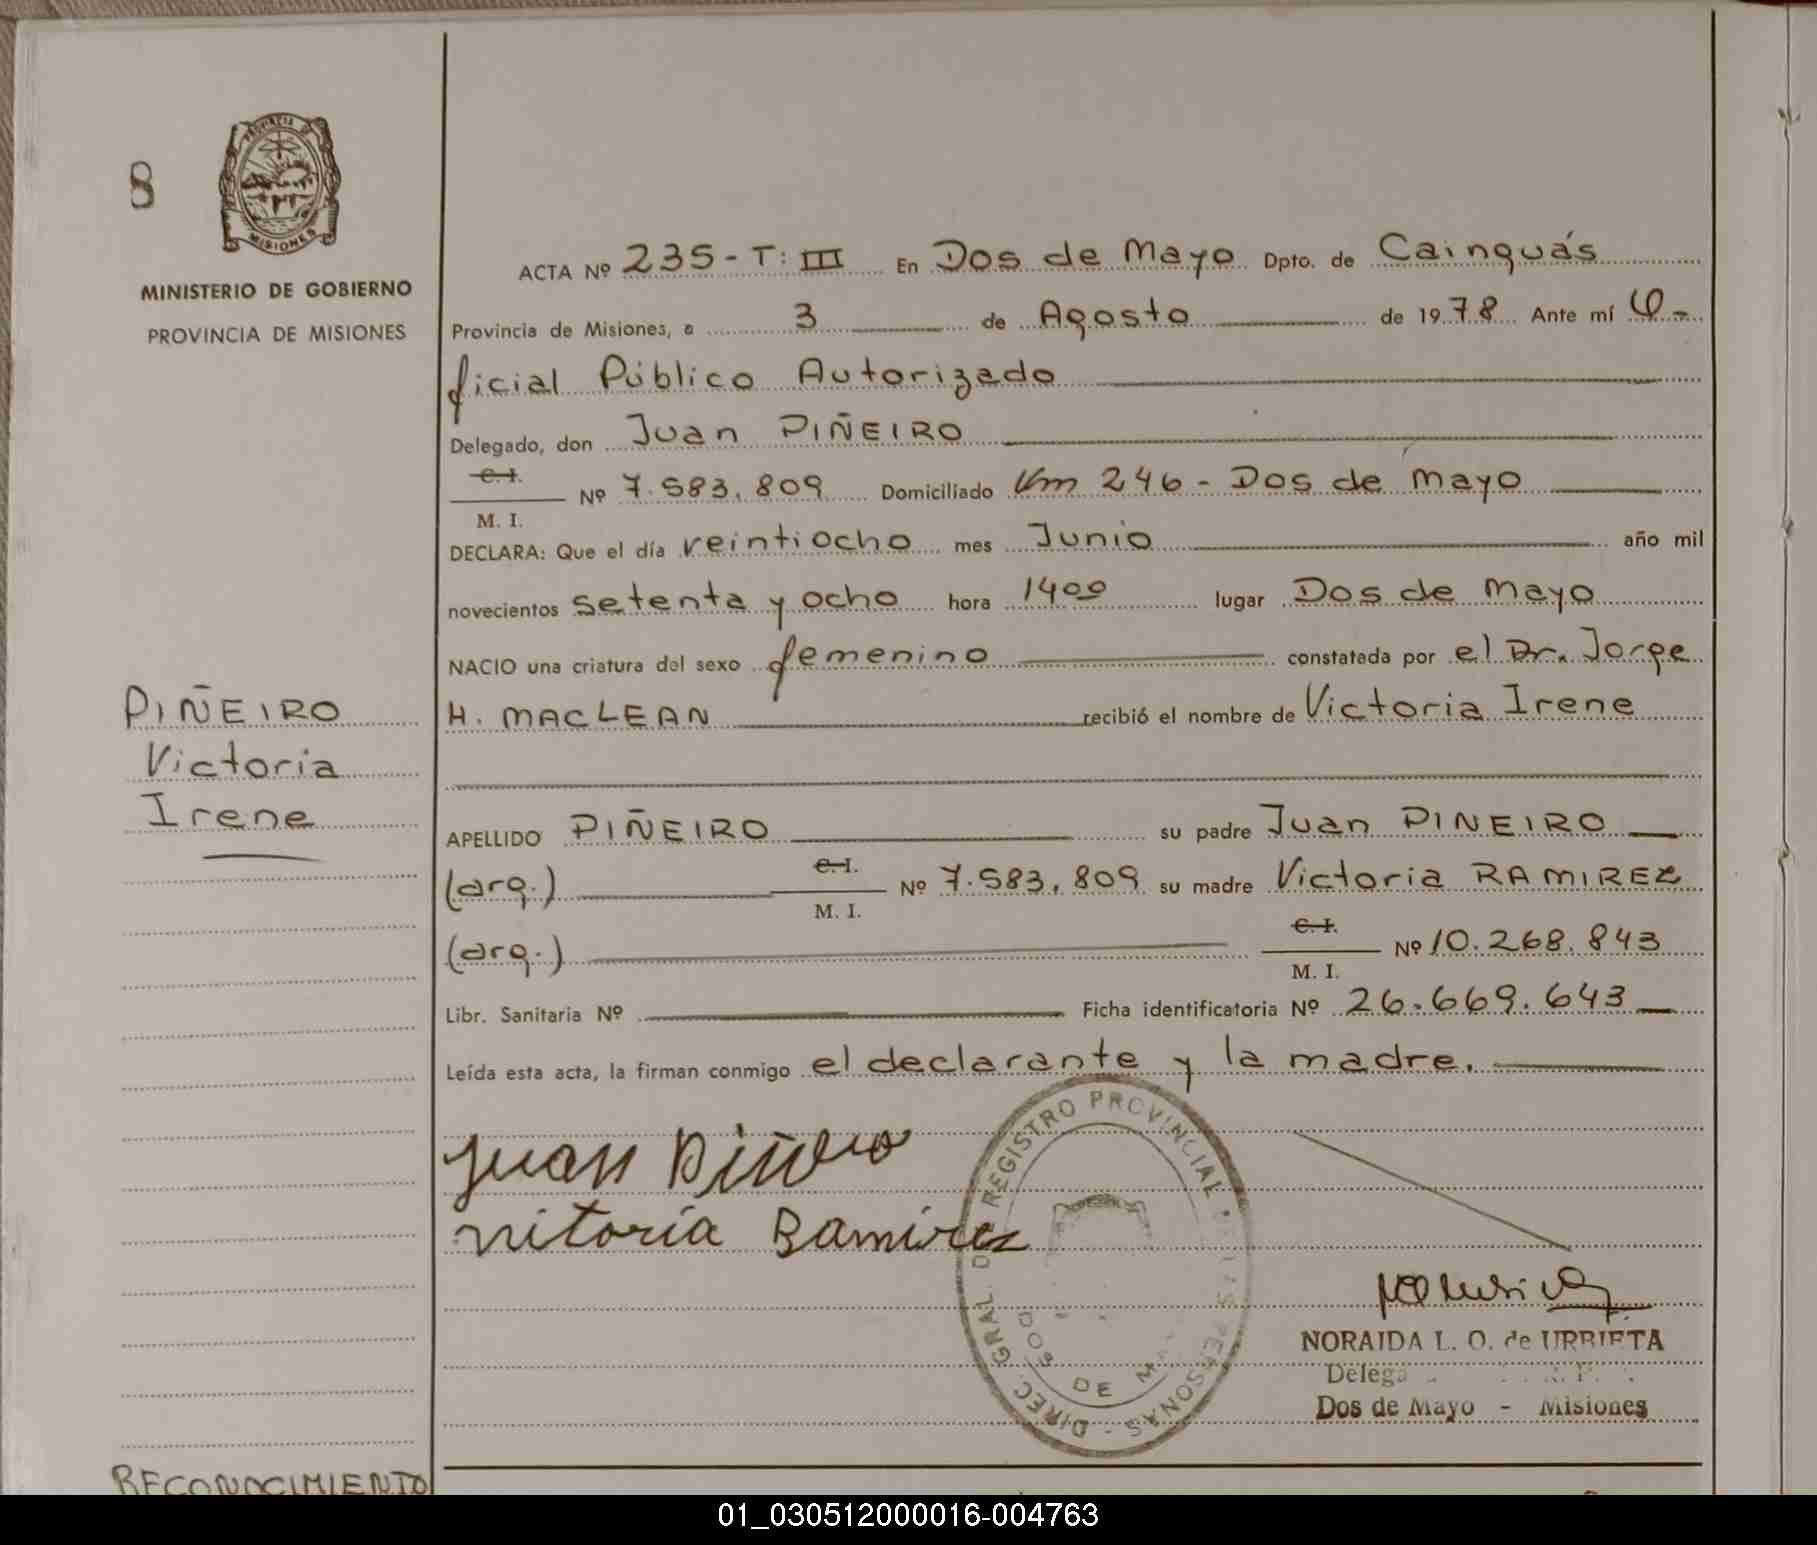 8
PROVINCIA DE
MISIONES
MINISTERIO DE GOBIERNO
PROVINCIA DE MISIONES
ACTA Nº 235-T: III En Dos de Mayo Dpto. de Cainguás
Provincia de Misiones, a 3 de Agosto de 1978 Ante mí O-
ficial Público Autorizado
Delegado, don Juan PIÑEIRO
C.I.
Nº 7.583.809 Domiciliado Km 246 - Dos de Mayo
M. I.
DECLARA: Que el día veintiocho mes Junio año mil
novecientos setenta y ocho hora 1400 lugar Dos de Mayo
NACIO una criatura del sexo femenino constatada por el Dr. Jorge
H. MACLEAN recibió el nombre de Victoria Irene
PIÑEIRO
Victoria
Irene
APELLIDO PIÑEIRO su padre Juan PINEIRO
(arg.) C.I. Nº 7.583.809 su madre Victoria RAMIREZ
M. I.
(arg.) C.I. Nº 10.268.843
M. I.
Libr. Sanitaria Nº Ficha identificatoria Nº 26.669.643
Leída esta acta, la firman conmigo el declarante y la madre.
Juan Piñeiro
vitoria Ramirez
DIREC. GRAL. DE REGISTRO PROVINCIAL DE LAS PERSONAS -
DOS DE
NORAIDA L. O. de URRIETA
Dos de Mayo - Misiones
RECONOCIMIENTO
01_030512000016-004763